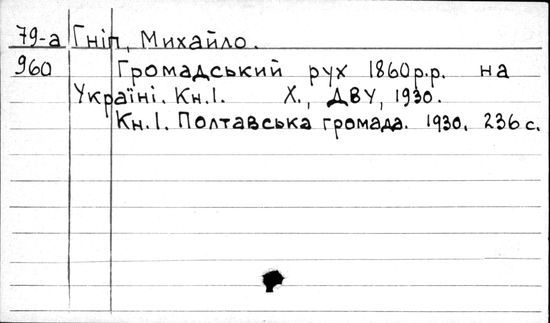 79-а Гніп, Михайло.
960 Громадський рух 1860р.р. на
Україні. Кн.1. Х., ДВУ, 1930.
Кн.1. Полтавська громада. 1930. 236 с.